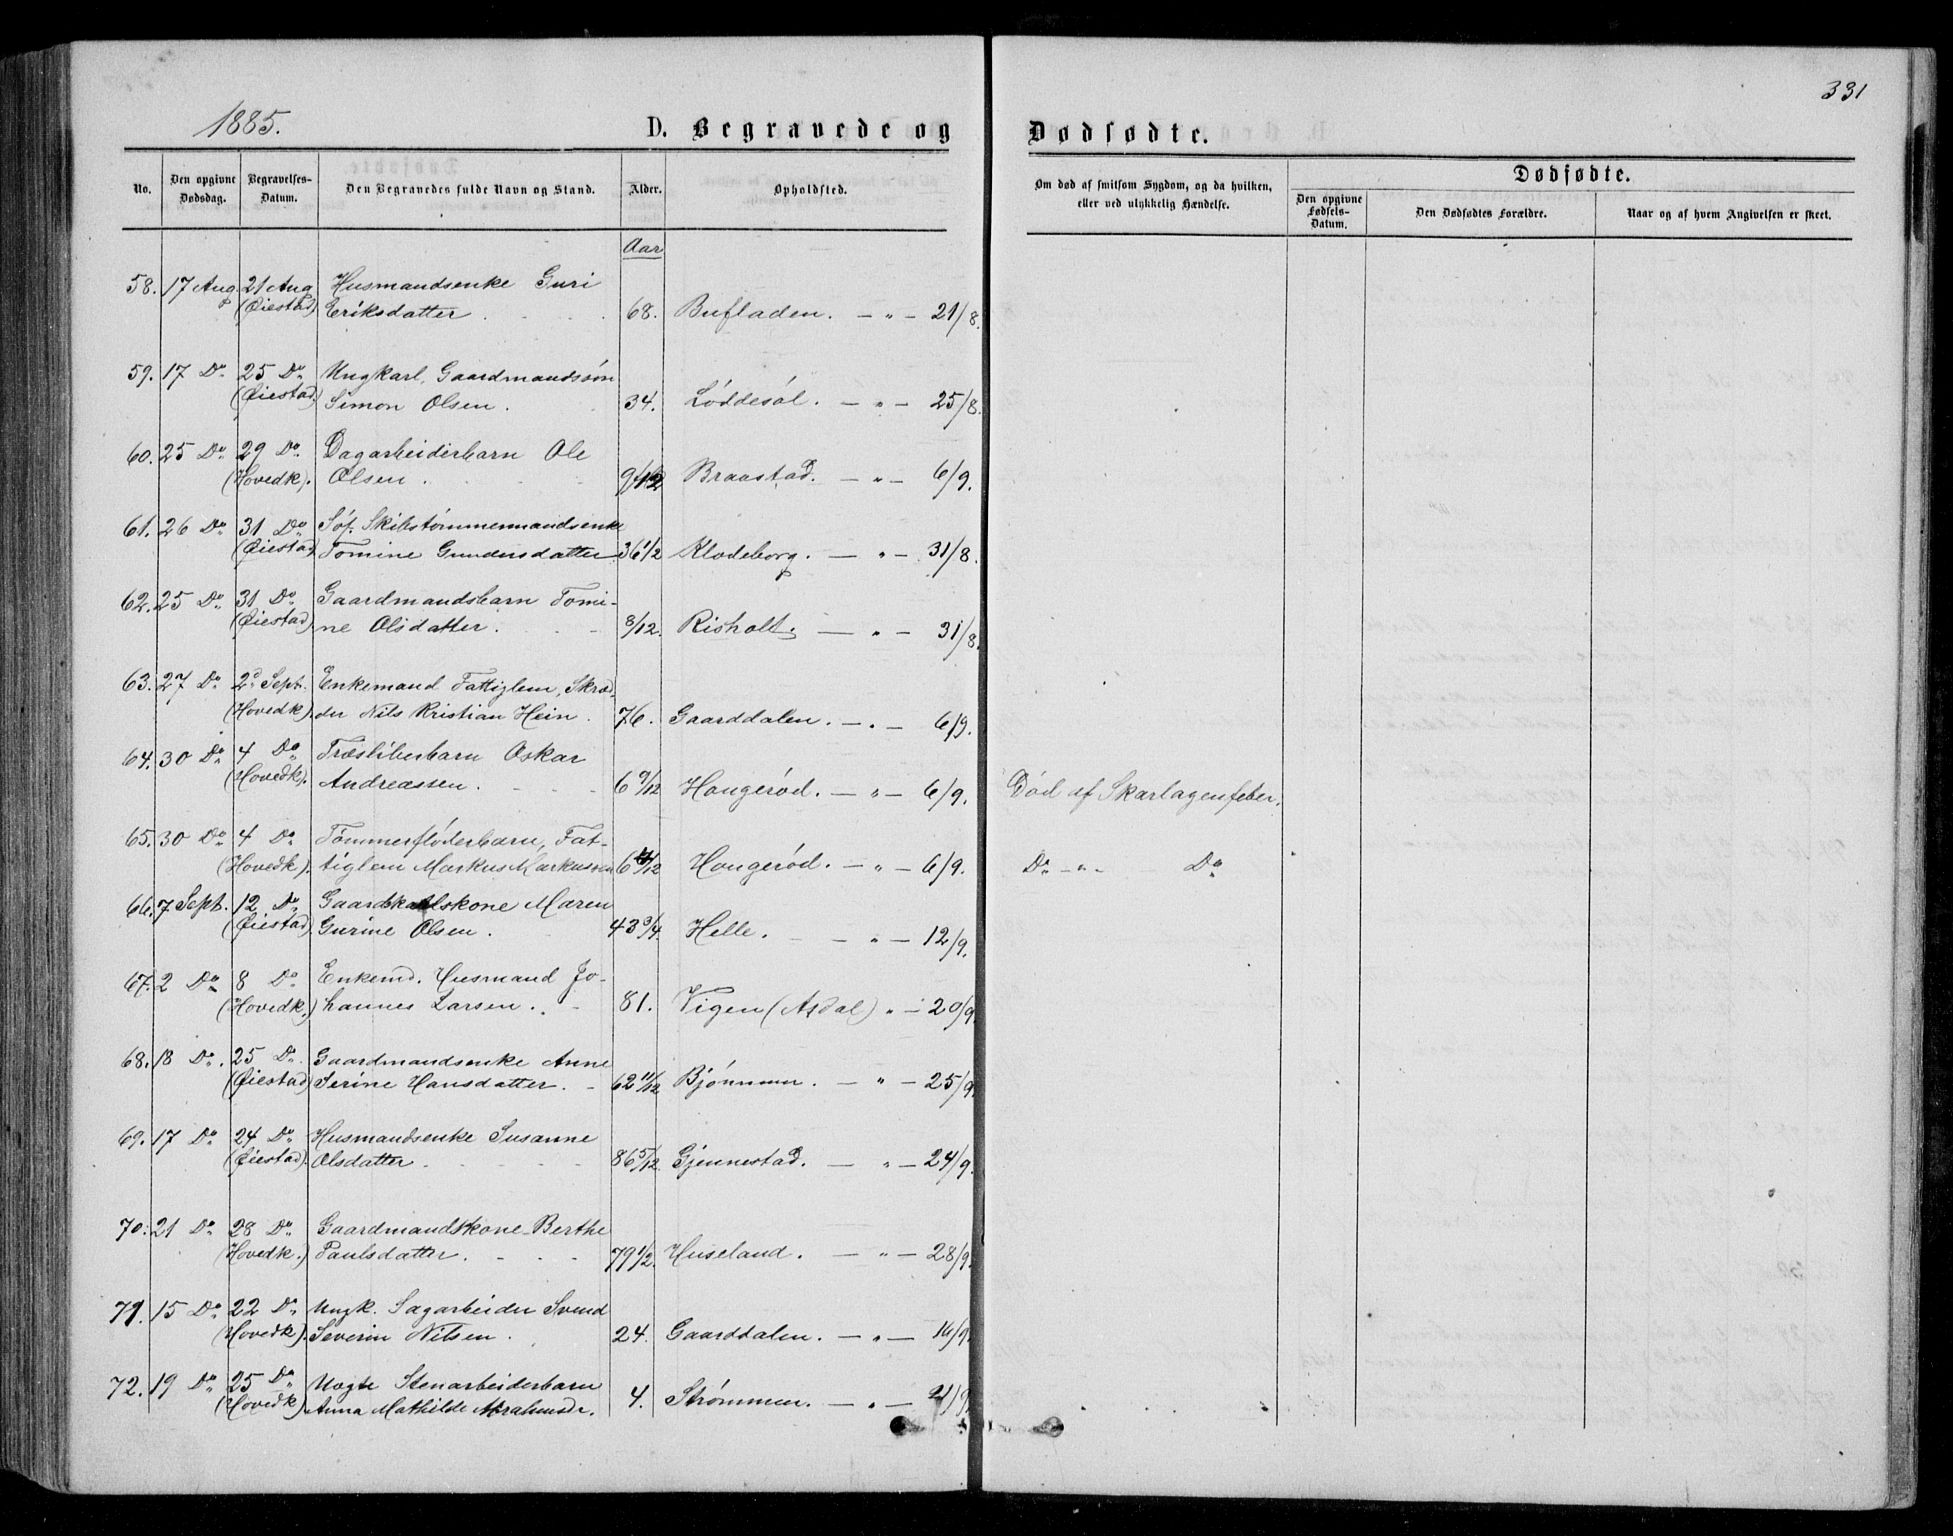 331
1885.
D. Begravede og Dødfødte.
No.
Den opgivne Dødsdag.
Begravelses-Datum.
Den Begravedes fulde Navn og Stand.
Alder.
Opholdsted.
Om død af smitsom Sygdom, og da hvilken, eller ved ulykkelig Hændelse.
Dødfødte.
Den opgivne Fødsels-Datum.
Den Dødfødtes Forældre.
Naar og af hvem Angivelsen er skeet.
Aar
58. 17 Aug. 21 Aug. Husmandsenke Guri
(Øiestad) Eriksdatter . . . 68. Bufladen. — " — 21/8.
59. 17 Do 25 Do Ungkarl, Gaardmandssøn
(Øiestad) Simon Olsen. 34. Løddesøl. — " — 25/8.
60. 25 Do 29 Do Dagarbeiderbarn Ole
(Hovedk). Olsen . 9/12 Braastad. — " — 6/9.
61. 26 Do 31 Do Søf. Skibstømmermandsenke
(Øiestad) Tomine Gundersdatter 36 1/2 Klodeborg. — " — 31/8.
62. 25 Do 31 Do Gaardmandsbarn Tomi-
(Øiestad) ne Olsdatter. 8/12. Risholt. — " — 31/8.
63. 27 Do 2d Sept. Enkemand Fattiglem, Skræd-
(Hovedk). der Nils Kristian Hein. 76. Gaarddalen. — " — 6/9.
64. 30 Do 4 Do Træsliberbarn Oskar
(Hovedk). Andreassen. 6 9/12 Hougerød. — " — 6/9. Død af Skarlagenfeber.
65. 30 Do 4 Do Tømmerfløderbarn, Fat-
(Hovedk). tiglem Markus Markussen 6 /12 Hougerød. — " — 6/9. Do — " — Do
66. 7 Sept. 12 Do Gaardskarlskone Maren
(Øiestad) Gurine Olsen. 43 3/4. Helle. — " — 12/9.
67. 2 Do 8 Do Enkemd. Husmand Jo-
(Hovedk.) hannes Larsen. 81. Vigen (Asdal) " — 20/9.
68. 18 Do. 25 Do Gaardmandsenke Anne
(Øiestad) Serine Hansdatter. 62 11/12 Bjønnum. — " — 25/9.
69. 17 Do 24 Do Husmandsenke Susanne
(Øiestad). Olsdatter. 86 5/12. Gjennestad. — " — 24/9.
70. 21 Do 28 Do Gaardmandskone Berthe
(Hovedk.) Paulsdatter. 79 1/2. Huseland. — " — 28/9.
71. 15 Do 22 Do Ungk. Sagarbeider Svend
(Hovedk). Severin Nilsen. 24. Gaarddalen. — " — 16/9.
72. 19 Do 25 Do Uægte Stenarbeiderbarn
(Hovedk). Anna Mathilde Abrahmsdr. 4. Strømmen. — " — 21/9.